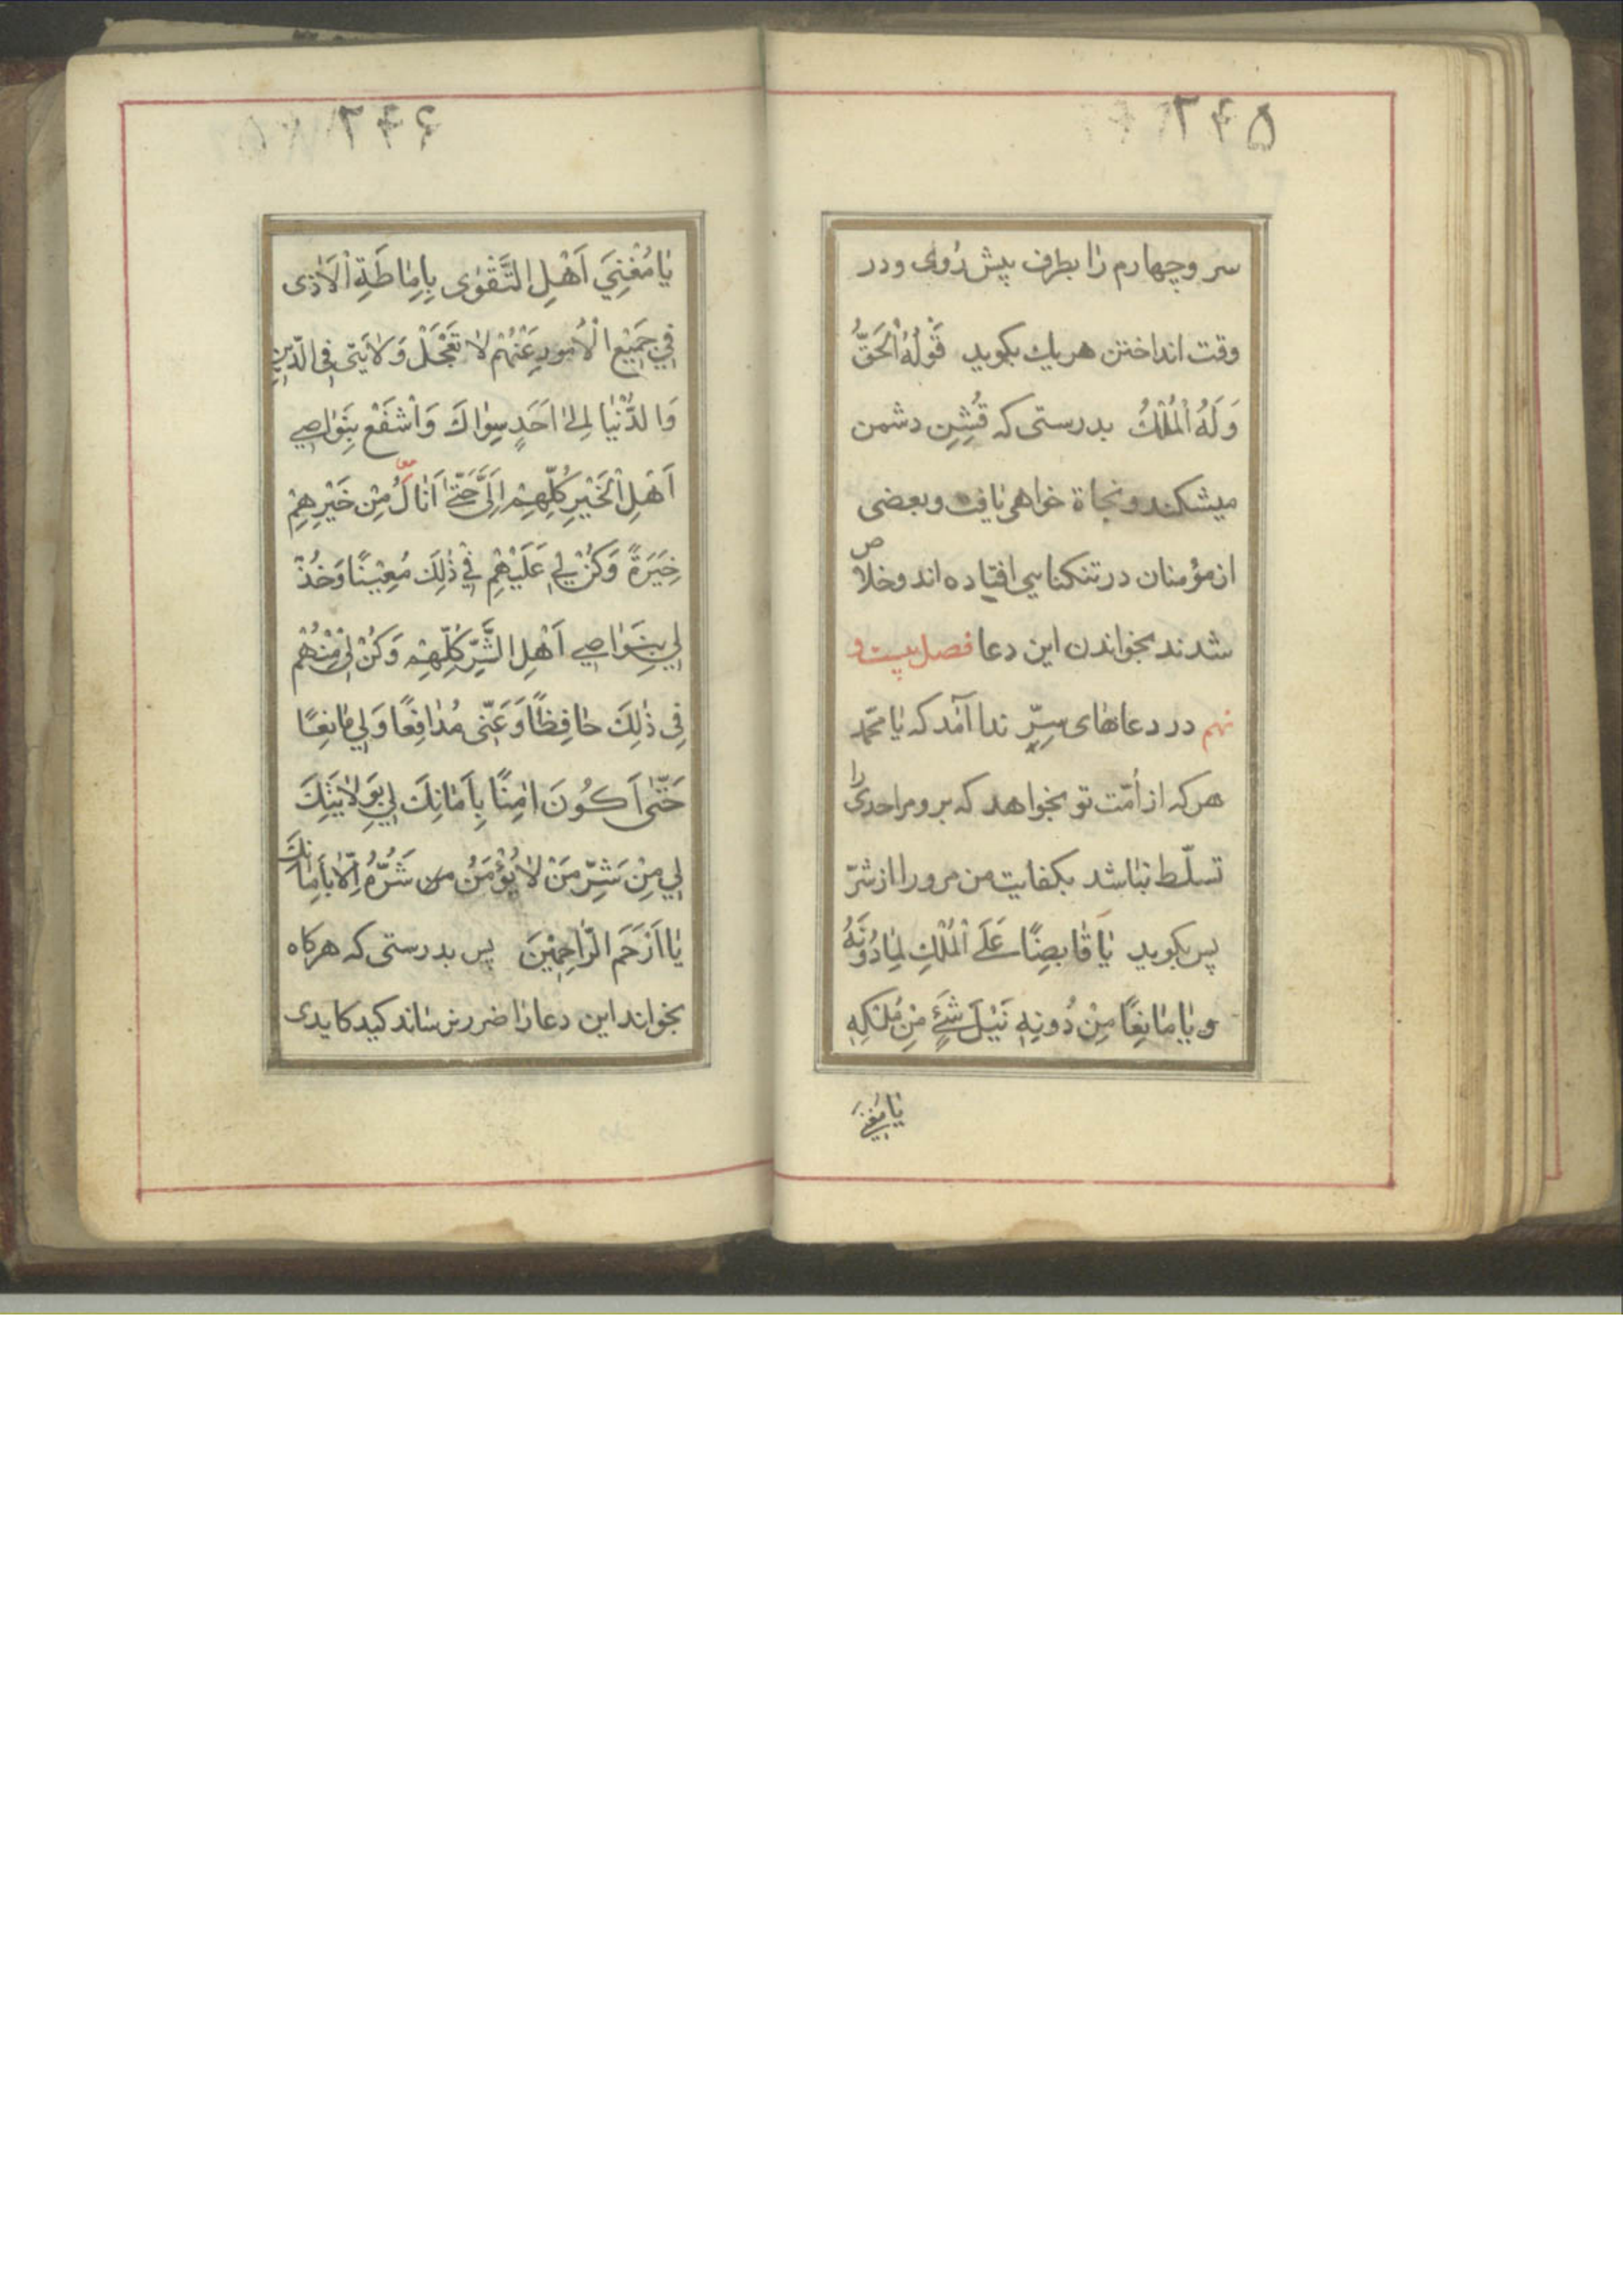 ۲۴۵
سر وچهارم رٰا بطرف پیش رُوی ودر
وقت انداختن هریك بکوید قَوْلُهُ اْلحَقُّ
وَلَهُ اْلمُلْكُ بدرستی که قُشِنِ دشمن
میشکند ونجاة خواهی یٰافت وبعضی
ازمؤمنان درتنکنایی افتاده اند وخلاص
شدند بخواندن این دعا فصل بیست و
نهم در دعاهٰای سِرّ ندا آمَد که یٰا محمّد
هرکه از اُمّت تو بخواهد که برو مراحدی را
تسلّط نبٰاشد بکفایت من مرورا از شرّ
پس بکوید یٰا قٰابِضًا عَلَی اْلمُلْكِ لِمٰا دُونَهُ
و یٰا مٰانِعًا مِنْ دُونِهِ نَیْلَ شَیْءٍ مِنْ مُلْکِهِ
یٰا مُغْنِیَ
۲۴۶
یٰا مُغْنِیَ اَهْلِ التَّقْوٰی بِاِمٰاطَةِ اْلاَذٰی
فِی جَمِیْعِ اْلاُمُورِ عَنْهُمْ لاٰ تَجْعَلْ وَلاٰیَتِی فِی الدّینِ
وَالدُّنْیٰا اِلیٰ اَحَدٍ سِوٰاكَ وَاْشفَعْ بِنَوٰاصِی
اَهْلِ اْلخَیْرِ کُلِّهِمْ اِلَیَّ حَتّیٰ اَنٰالَ مِنْ خَیْرِهِمْ
خِیَرَةً وَکُنْ لِی عَلَیْهِمْ فِی ذٰلِكَ مُعِیْنًا وَخُذْ
لِی بِنَوٰاصِی اَهْلِ الشَّرِّ کُلِّهِمْ وَکُنْ لِی مِنْهُمْ
فِی ذٰلِكَ حٰافِظًا وَعَنّی مُدٰافِعًا وَلِی مٰانِعًا
حَتّیٰ اَکُونَ اٰمِنًا بِاَمٰانِكَ لِی بِوَلاٰیَتِكَ
لِی مِنْ شَرِّ مَنْ لاٰ یُؤْمَنُ من شَرُّهُ اِلاّٰ بِاَمٰانِكَ
یٰا اَرْحَمَ الرّٰاحِمِیْنَ پس بدرستی که هرکاه
بخواند این دعا رٰا ضرر نرسٰاند کید کایدی